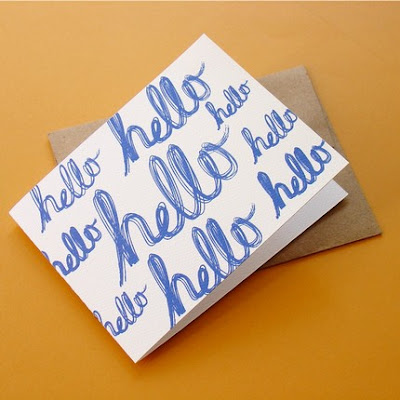 hello
hello
hello
hello
hello
hello
hello
hello
hello